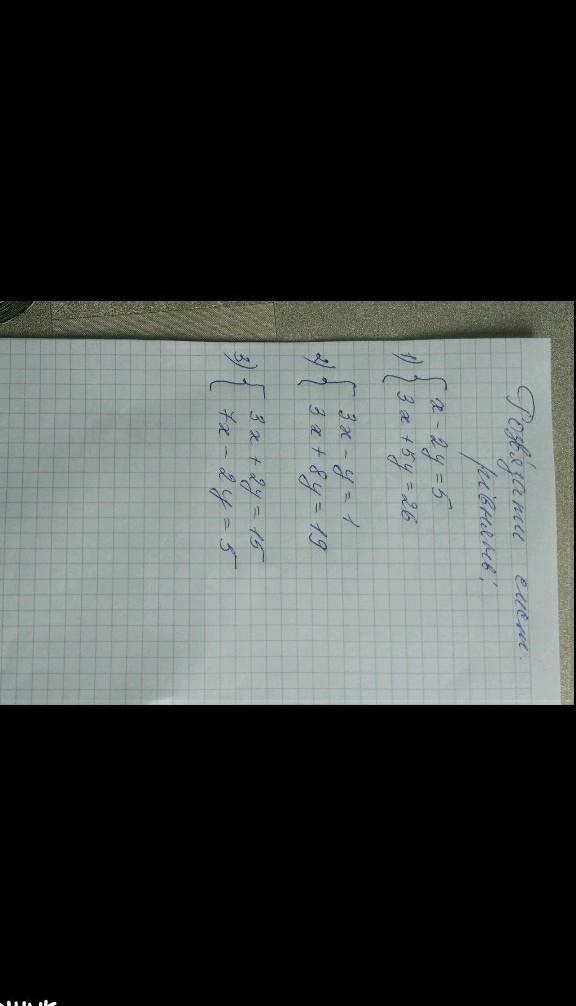 Розв'язати сист.
рівнянь:
1) { x - 2y = 5
3x + 5y = 26
2) { 3x - y = 1
3x + 8y = 19
3) { 3x + 2y = 15
7x - 2y = 5